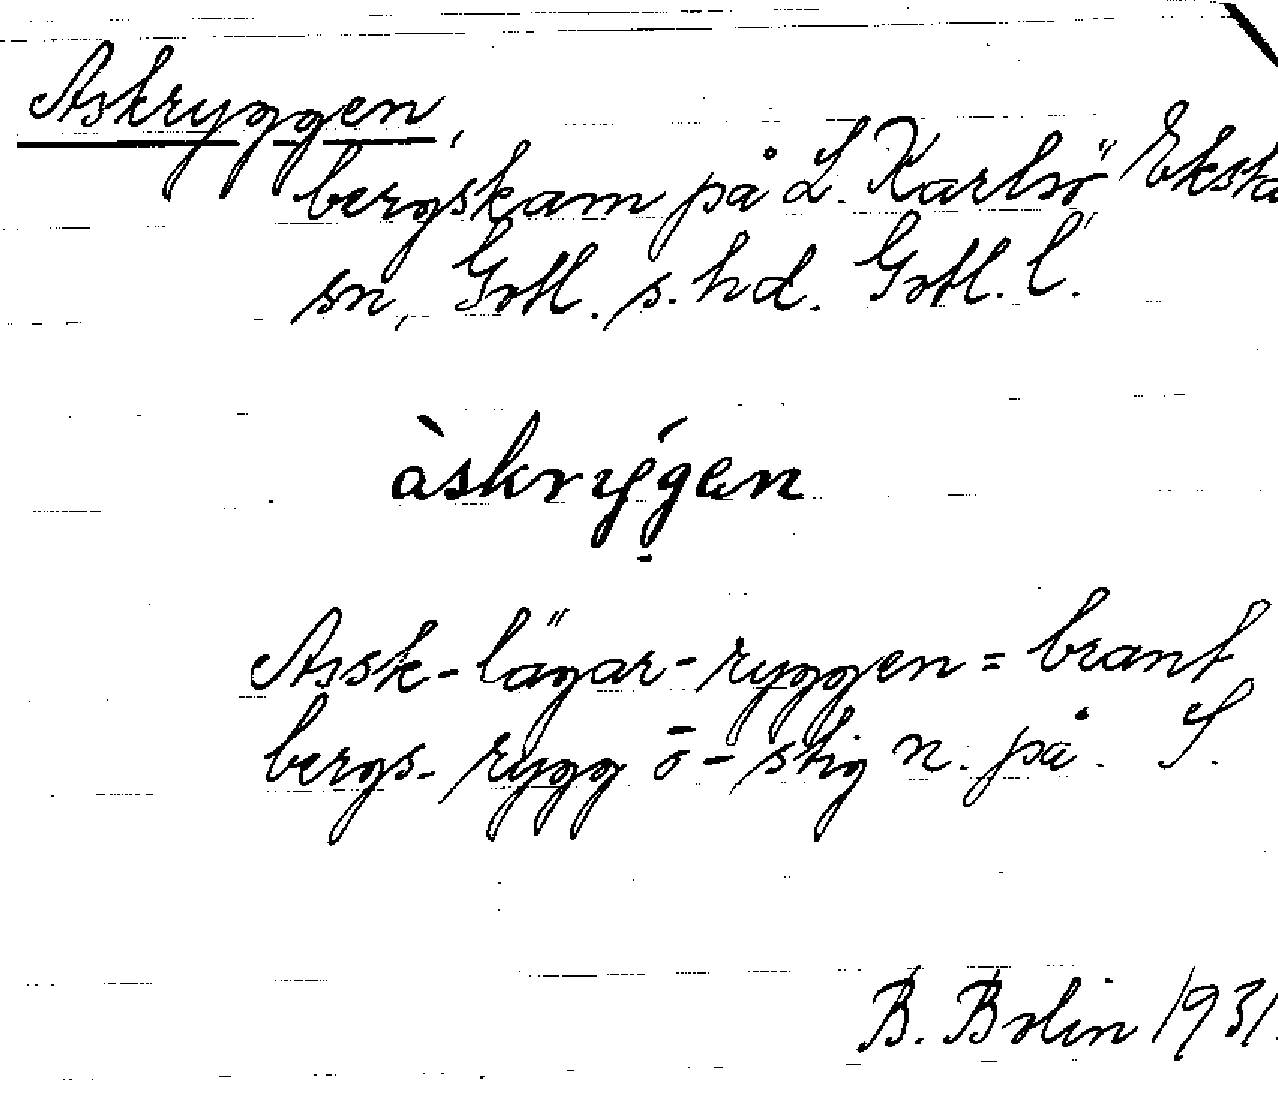 Askryggen,
bergskam på L. Karlsö Eksta
sn, Gotl. s. hd. Gotl. l.
àskrýgen
Assk-lägar-ryggen = brant
bergs-rygg ō-stig n. på. S.
B. Bolin 1931.